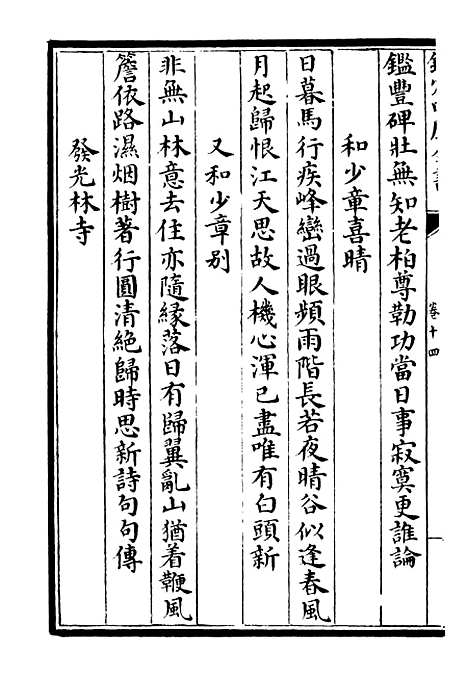 卷十四
鑑豐碑壯無知老柏尊勒功當日事寂寞更誰論
和少章喜晴
日暮馬行疾峰巒過眼頻雨階長若夜晴谷似逢春風
月起歸恨江天思故人機心渾已盡唯有白頭新
又和少章别
非無山林意去住亦隨緣落日有歸翼亂山猶着鞭風
簷依路濕烟樹著行圓清絶歸時思新詩句句傳
發光林寺